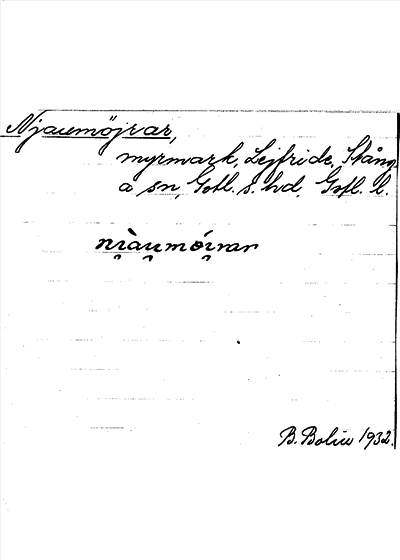 Njaumöjrar,
myrmark, Lejfride, Stång-
a sn, Gotl. s. hd, Gotl. l.
ni̯àu̯mói̯rar
B. Bolin 1932.